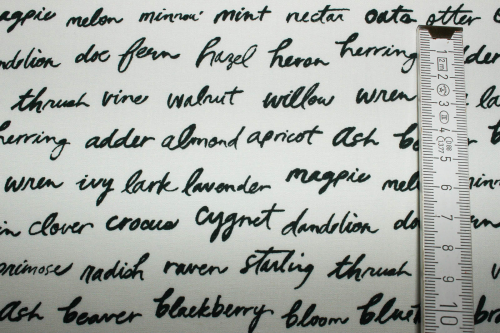 magpie melon minnow mint nectar oats otter
dandelion doe fern hazel heron herring
thrush vine walnut willow wren
herring adder almond apricot ash
wren ivy lark lavender magpie
clover crocus cygnet dandelion
primrose radish raven starling thrush
ash beaver blackberry bloom
1 2 3 4 5 6 7 8 9 10